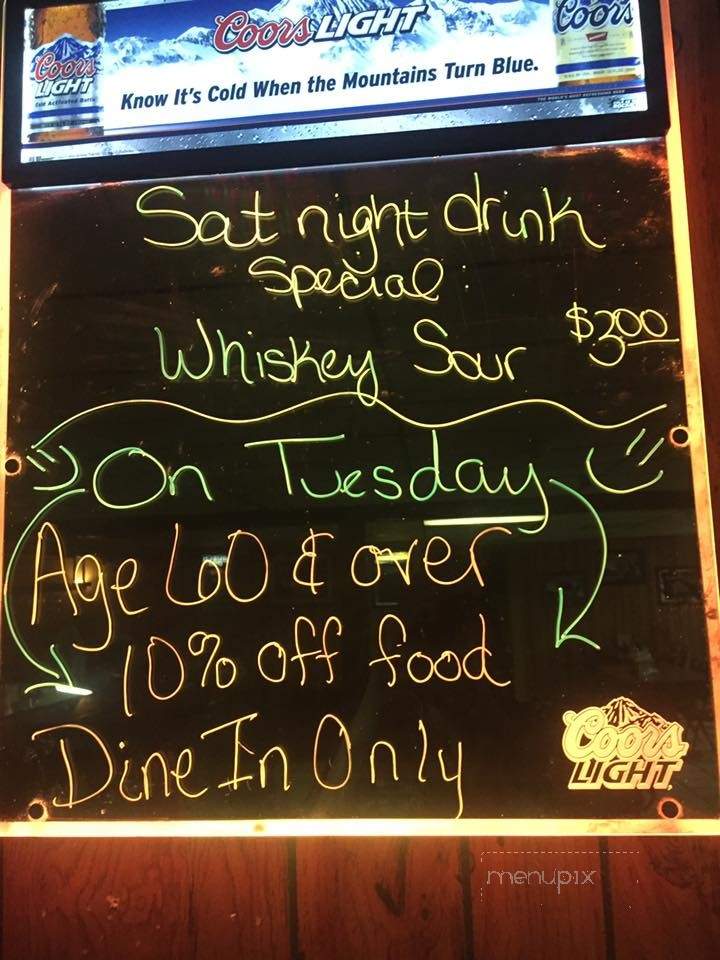 Coors LIGHT
Coors
Coors
LIGHT
Know It's Cold When the Mountains Turn Blue.
Sat night drink
Special:
Whiskey Sour $3.00
On Tuesday
Age 60 & over
10% off food
Dine In Only
Coors
LIGHT
menupix